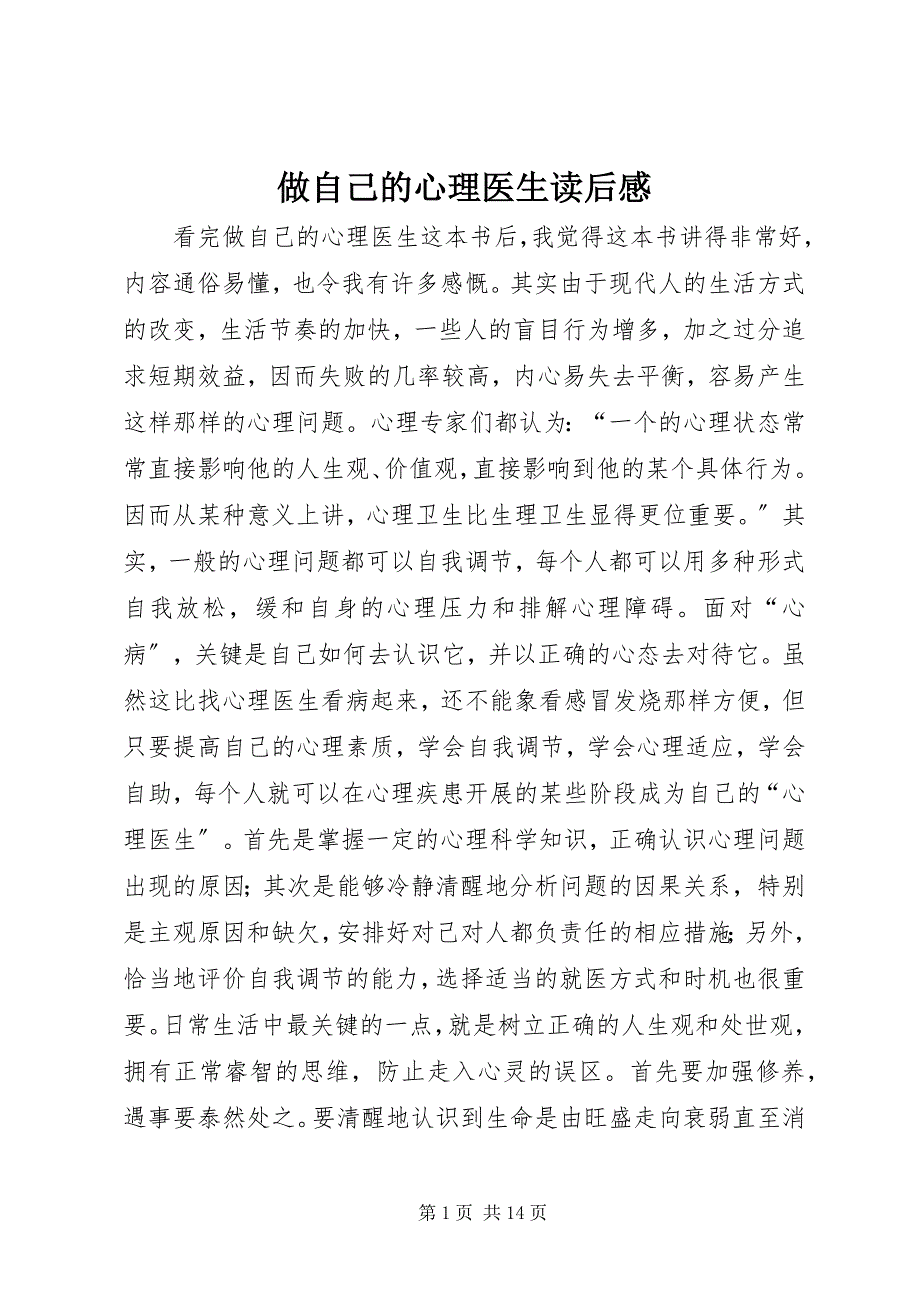 做自己的心理医生读后感
看完做自己的心理医生这本书后，我觉得这本书讲得非常好，
内容通俗易懂，也令我有许多感慨。其实由于现代人的生活方式
的改变，生活节奏的加快，一些人的盲目行为增多，加之过分追
求短期效益，因而失败的几率较高，内心易失去平衡，容易产生
这样那样的心理问题。心理专家们都认为：“一个的心理状态常
常直接影响他的人生观、价值观，直接影响到他的某个具体行为。
因而从某种意义上讲，心理卫生比生理卫生显得更位重要。〞其
实，一般的心理问题都可以自我调节，每个人都可以用多种形式
自我放松，缓和自身的心理压力和排解心理障碍。面对“心
病〞，关键是自己如何去认识它，并以正确的心态去对待它。虽
然这比找心理医生看病起来，还不能象看感冒发烧那样方便，但
只要提高自己的心理素质，学会自我调节，学会心理适应，学会
自助，每个人就可以在心理疾患开展的某些阶段成为自己的“心
理医生〞。首先是掌握一定的心理科学知识，正确认识心理问题
出现的原因；其次是能够冷静清醒地分析问题的因果关系，特别
是主观原因和缺欠，安排好对己对人都负责任的相应措施；另外，
恰当地评价自我调节的能力，选择适当的就医方式和时机也很重
要。日常生活中最关键的一点，就是树立正确的人生观和处世观，
拥有正常睿智的思维，防止走入心灵的误区。首先要加强修养，
遇事要泰然处之。要清醒地认识到生命是由旺盛走向衰弱直至消
第 1 页 共 14 页